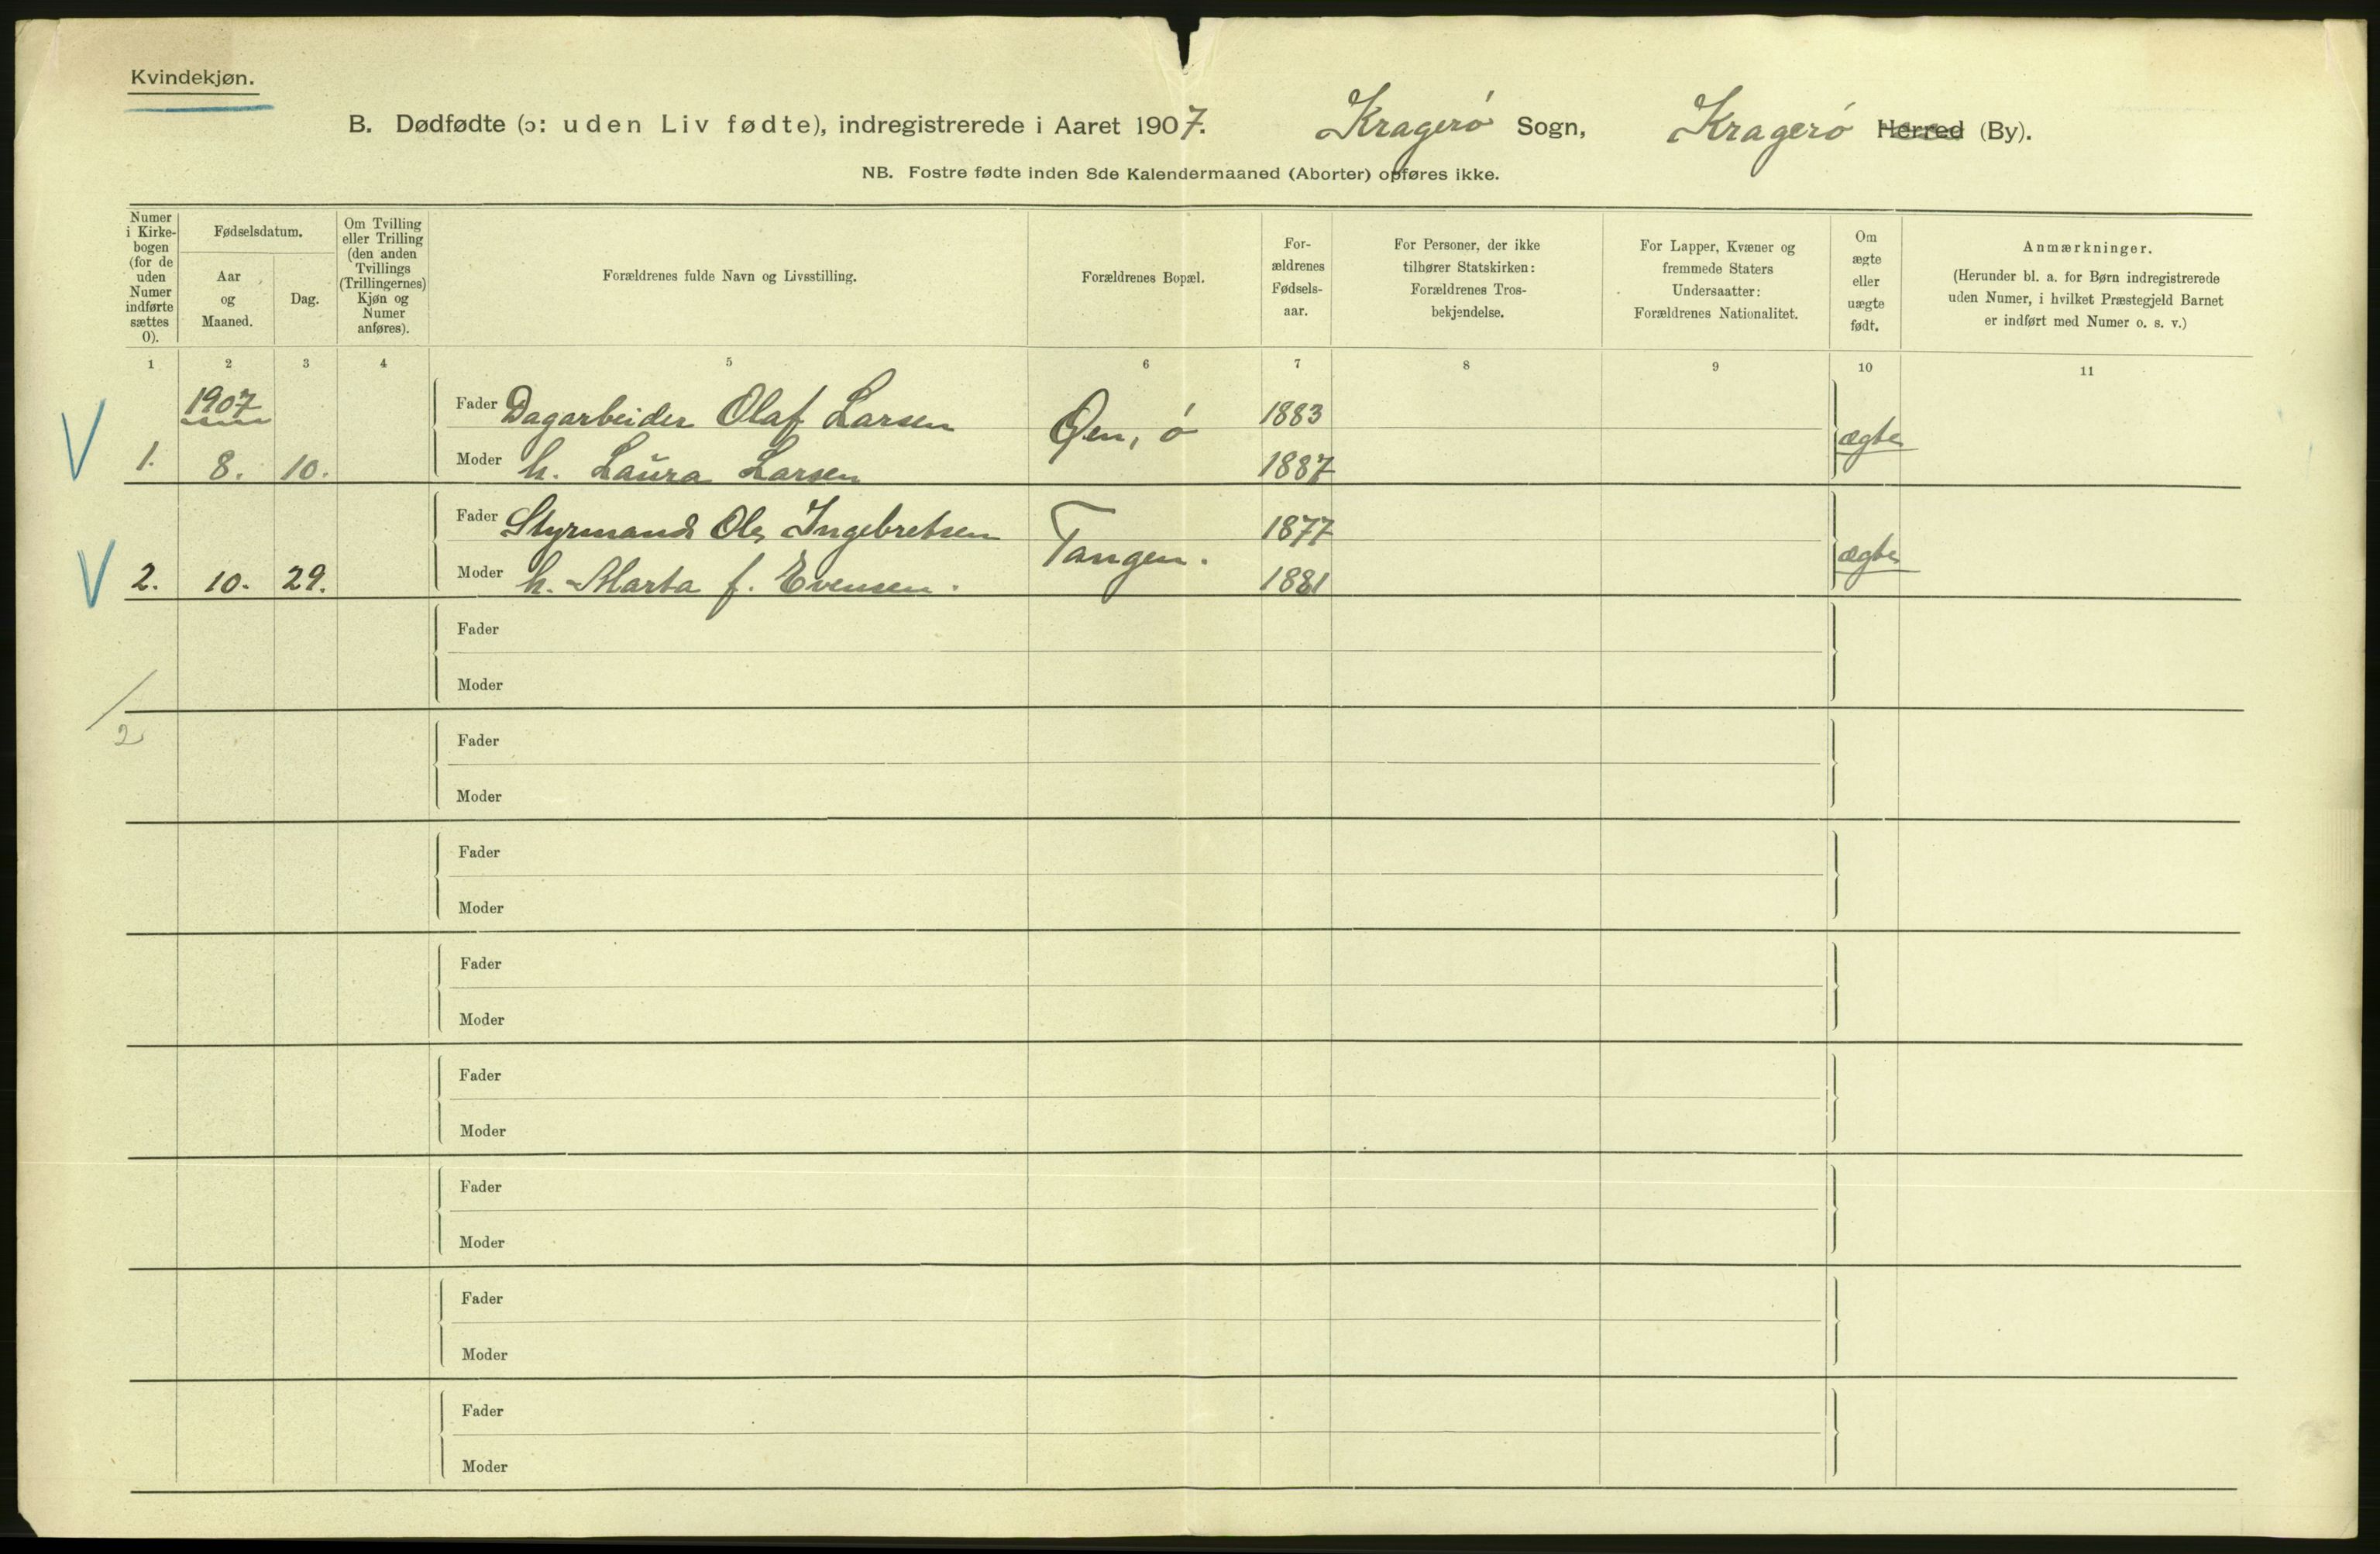 Kvindekjøn.
B. Dødfødte (ɔ: uden Liv fødte), indregistrerede i Aaret 1907. Kragerø Sogn, Kragerø Herred (By).
NB. Fostre fødte inden 8de Kalendermaaned (Aborter) opføres ikke.
Numer
i Kirke-
bogen
(for de
uden
Numer
indførte
sættes
0).
Fødselsdatum.
Aar
og
Maaned.
Dag.
Om Tvilling
eller Trilling
(den anden
Tvillings
(Trillingernes)
Kjøn og
Numer
anføres).
Forældrenes fulde Navn og Livsstilling.
Forældrenes Bopæl.
For-
ældrenes
Fødsels-
aar.
For Personer, der ikke
tilhører Statskirken:
Forældrenes Tros-
bekjendelse.
For Lapper, Kvæner og
fremmede Staters
Undersaatter:
Forældrenes Nationalitet.
Om
ægte
eller
uægte
født.
Anmærkninger.
(Herunder bl. a. for Børn indregistrerede
uden Numer, i hvilket Præstegjeld Barnet
er indført med Numer o. s. v.)
1 2 3 4 5 6 7 8 9 10 11
1907
Fader Dagarbeider Olaf Larsen Øen, ó 1883 ægte
V 1. 8. 10. Moder h. Laura Larsen 1887
Fader Styrmand Ole Ingebretsen Tangen. 1877 ægte
V 2. 10. 29. Moder h. Marta f. Evensen. 1881
Fader
Moder
/
2
Fader
Moder
Fader
Moder
Fader
Moder
Fader
Moder
Fader
Moder
Fader
Moder
Fader
Moder